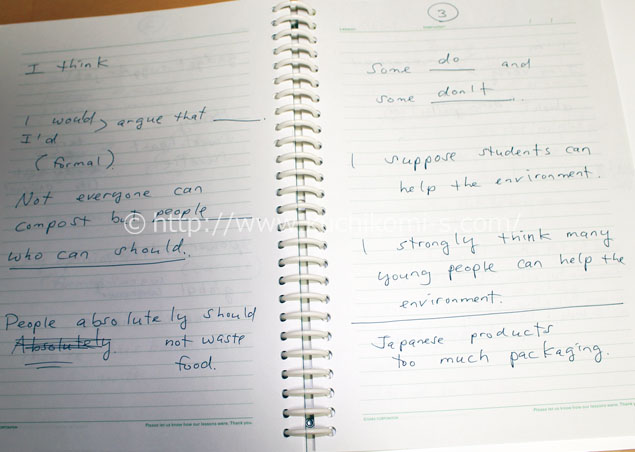 I think
I would, argue that ____.
I'd
(formal)
Not everyone can
compost but people
who can should.
People absolutely should
Absolutely not waste
food.
Please let us know how our lessons were. Thank you.
3
Lesson
Instructor
/ /
Some do and
some don't.
I suppose students can
help the environment.
I strongly think many
young people can help the
environment.
Japanese products
too much packaging.
Please let us know how our lessons were. Thank you.
© http://www.